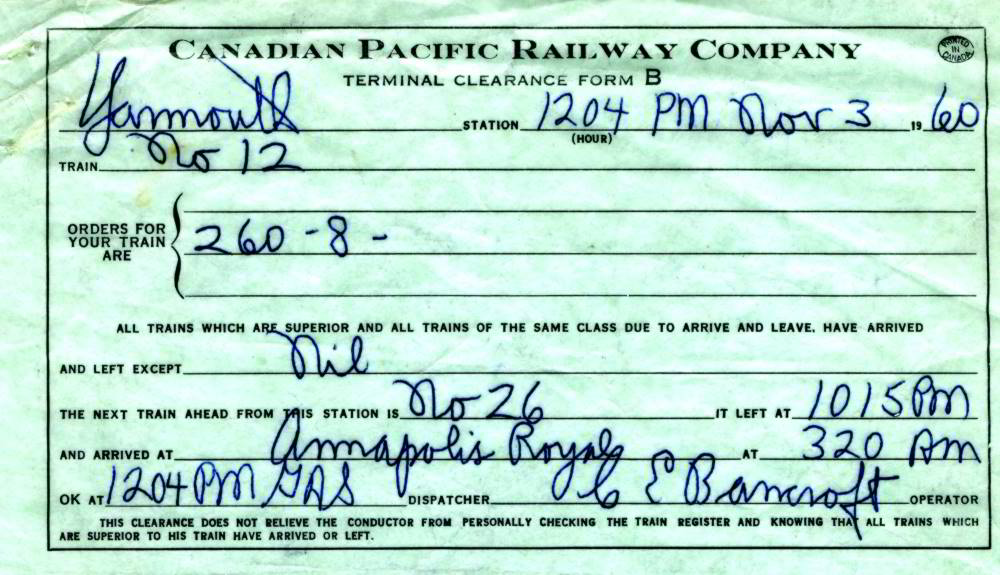 CANADIAN PACIFIC RAILWAY COMPANY
PRINTED IN CANADA
TERMINAL CLEARANCE FORM B
Yarmouth STATION 1204 PM Nov 3 1960
(HOUR)
TRAIN No 12
ORDERS FOR YOUR TRAIN ARE 260 - 8 -
ALL TRAINS WHICH ARE SUPERIOR AND ALL TRAINS OF THE SAME CLASS DUE TO ARRIVE AND LEAVE, HAVE ARRIVED
AND LEFT EXCEPT Nil
THE NEXT TRAIN AHEAD FROM THIS STATION IS No 26 IT LEFT AT 1015 PM
AND ARRIVED AT Annapolis Royal AT 320 AM
OK AT 1204 PM GAS DISPATCHER C E Bancroft OPERATOR
THIS CLEARANCE DOES NOT RELIEVE THE CONDUCTOR FROM PERSONALLY CHECKING THE TRAIN REGISTER AND KNOWING THAT ALL TRAINS WHICH
ARE SUPERIOR TO HIS TRAIN HAVE ARRIVED OR LEFT.